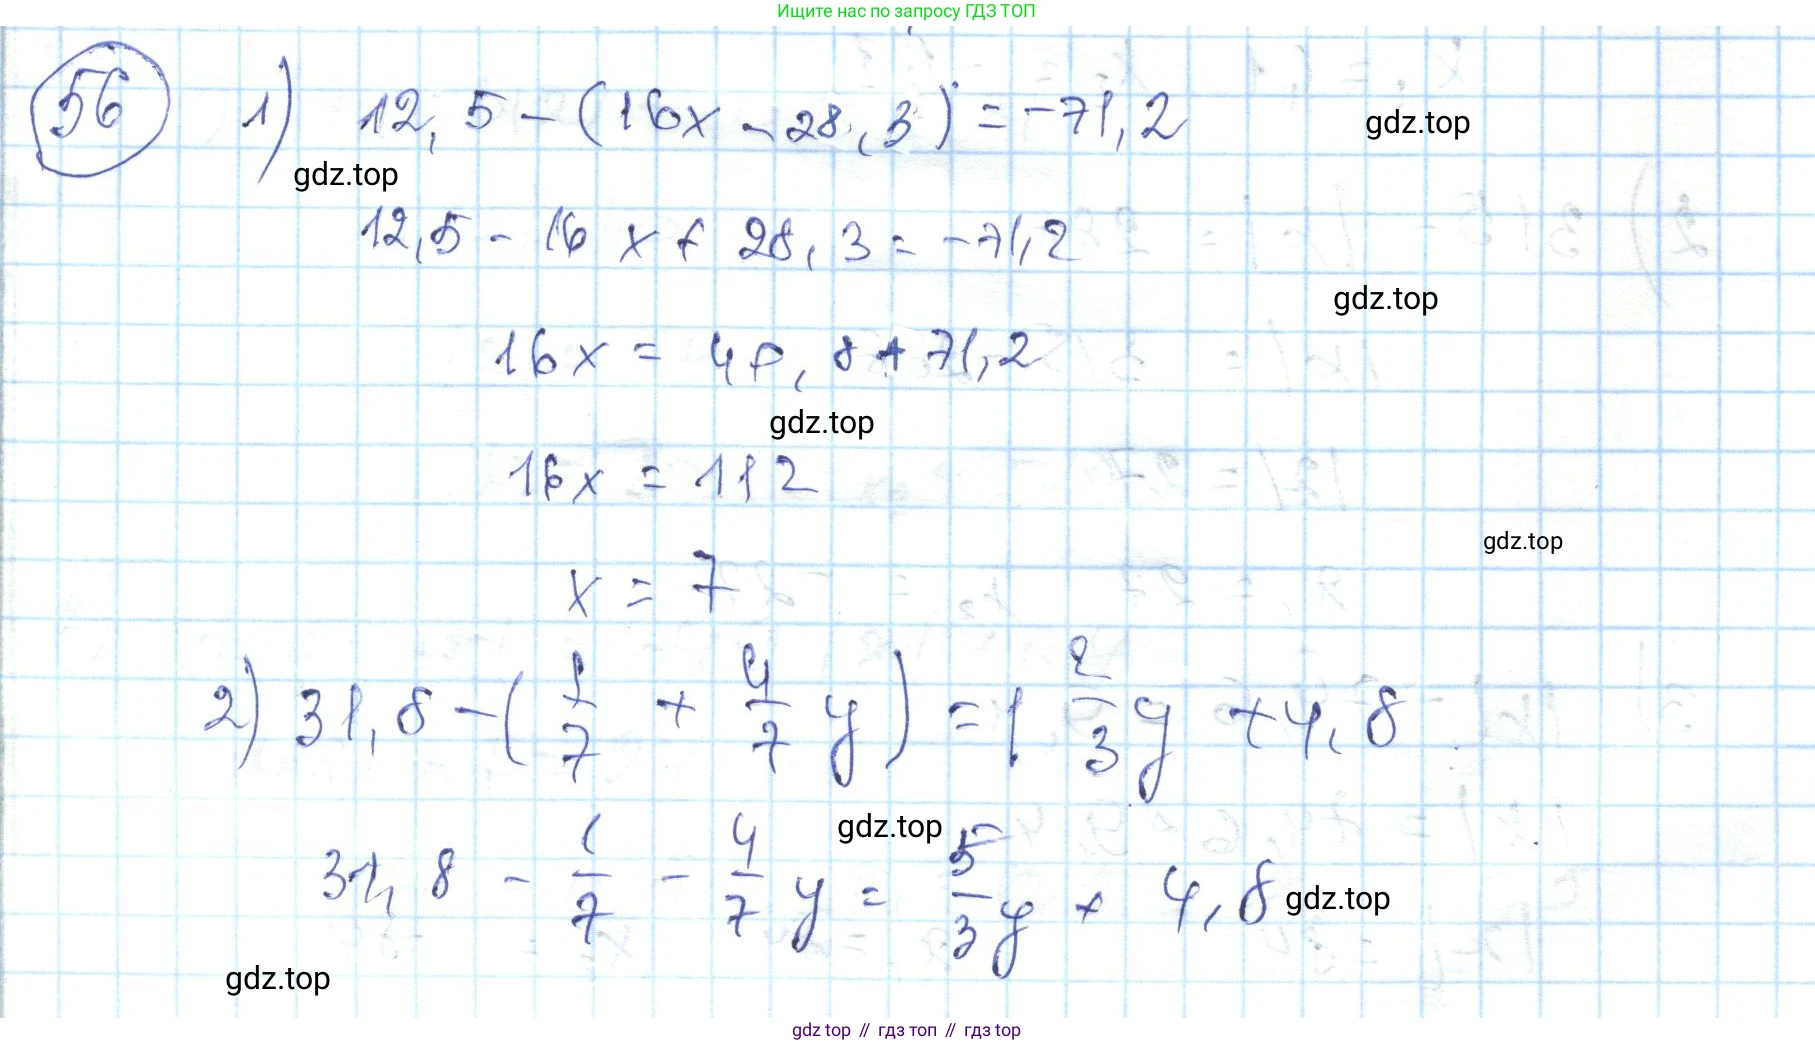 Ищите нас по запросу ГДЗ ТОП
56 1) 12,5 - (16x - 28,3) = -71,2
gdz.top
gdz.top
12,5 - 16x + 28,3 = -71,2
gdz.top
16x = 40,8 + 71,2
gdz.top
16x = 112
gdz.top
x = 7
2) 31,8 - (1/7 + 4/7 y) = 1 2/3 y + 4,8
gdz.top
31,8 - 1/7 - 4/7 y = 5/3 y + 4,8
gdz.top
gdz.top
gdz top // гдз топ // гдз top